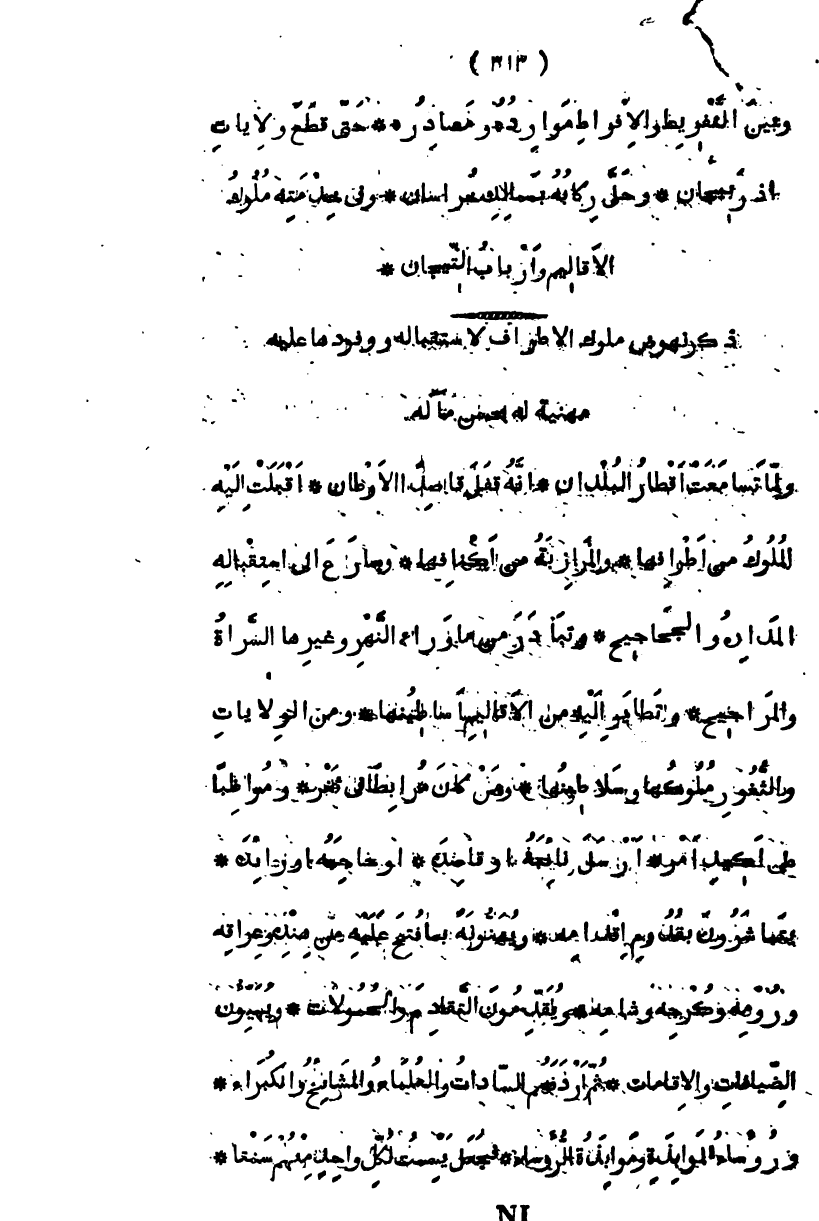 ( ٣١٣ )
وبين التفريط والافراط موارده ومصادره * حتى قطع ولايات
اذربيجان * وحلى ركابه بممالك خراسان * وفى خدمته ملوك
الاقاليم وارباب التيجان *
ذكر نهوض ملوك الاطراف لاستقباله ووفودها عليه
مهنية له بحسن مآله
ولما تسامعت اقطار البلدان * انه قفل قاصدا الاوطان * اقبلت اليه
الملوك من اطرافها * والمرازبة من اكنافها * وسارع الى استقباله
والجحاجيح * وتبادر من ماوراء النهر وغيرها السراة
والمراجيح * وتطاير اليه من الاقاليم اساطينها * ومن الولايات
والثغور ملوكها وسلاطينها * ومن كان مرابطا فى ثغر * ومواظبا
على امر * ارسل نايبه او قاصده * او حاجبه او رائده *
بقدوم اقدامه * ويهنونه بما فتح عليه من هنده وعراقه
ورومه وكرجه وشامه * ويقدمون التقادم والحمولات * ويهيئون
الضيافات والاقامات * ثم اردفهم السادات والعلماء والمشايخ والكبراء *
ورؤساء الموابدة وموابدة الرؤساء * فجعل لكل واحد منهم سمتا *
NI